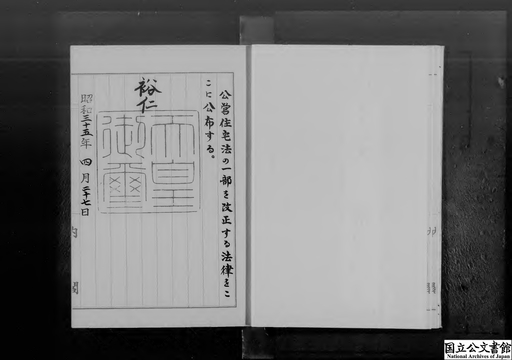 公営住宅法の一部を改正する法律をこ
こに公布する。
裕仁
天皇
御璽
昭和三十五年四月二十七日
内閣
内閣
国立公文書館
National Archives of Japan